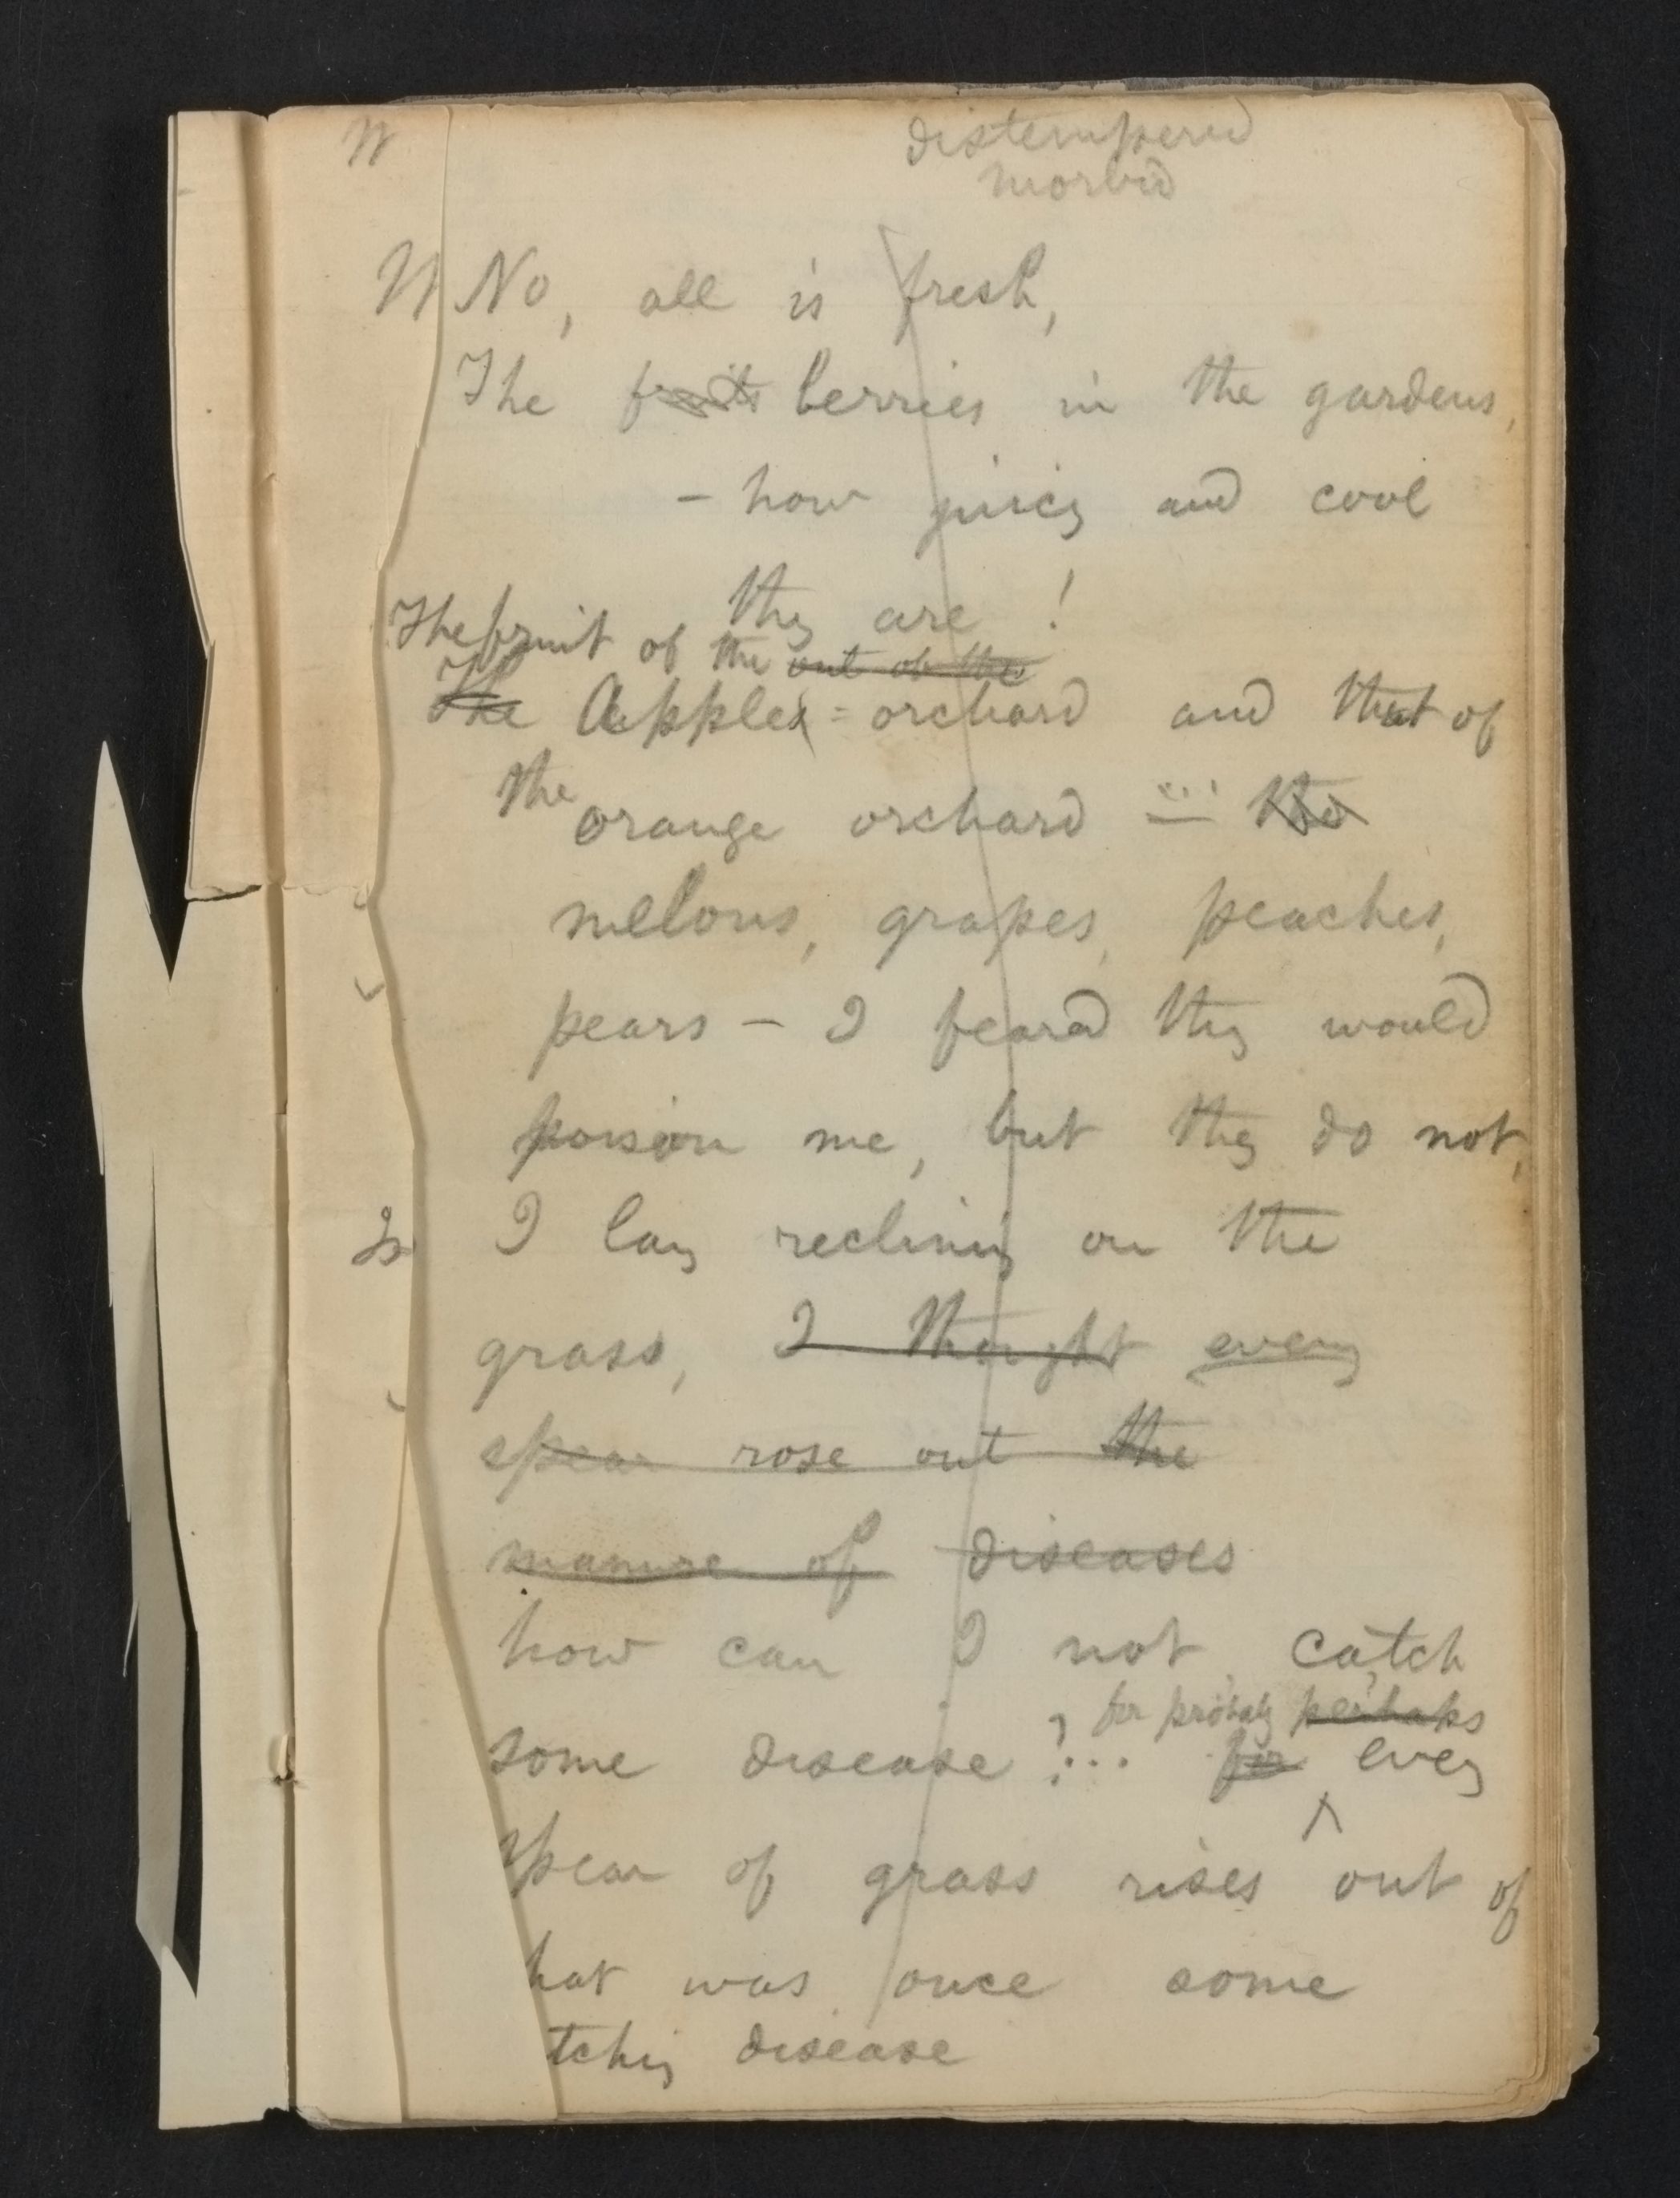 W distempered
morbid
W No, all is fresh,
The fruits berries in the gardens,
– how juicy and cool
they are !
The fruit of the out of the
The Apples = orchard and that of
the orange orchard – the
melons, grapes, peaches,
pears – I feared they would
poison me, but they do not,
Is I lay reclining on the
grass, I thought every
spear rose out the
manure of diseases
how can I not catch
for probably perhaps
some disease ?... for every
spear of grass rises out of
hat was once some
tching disease